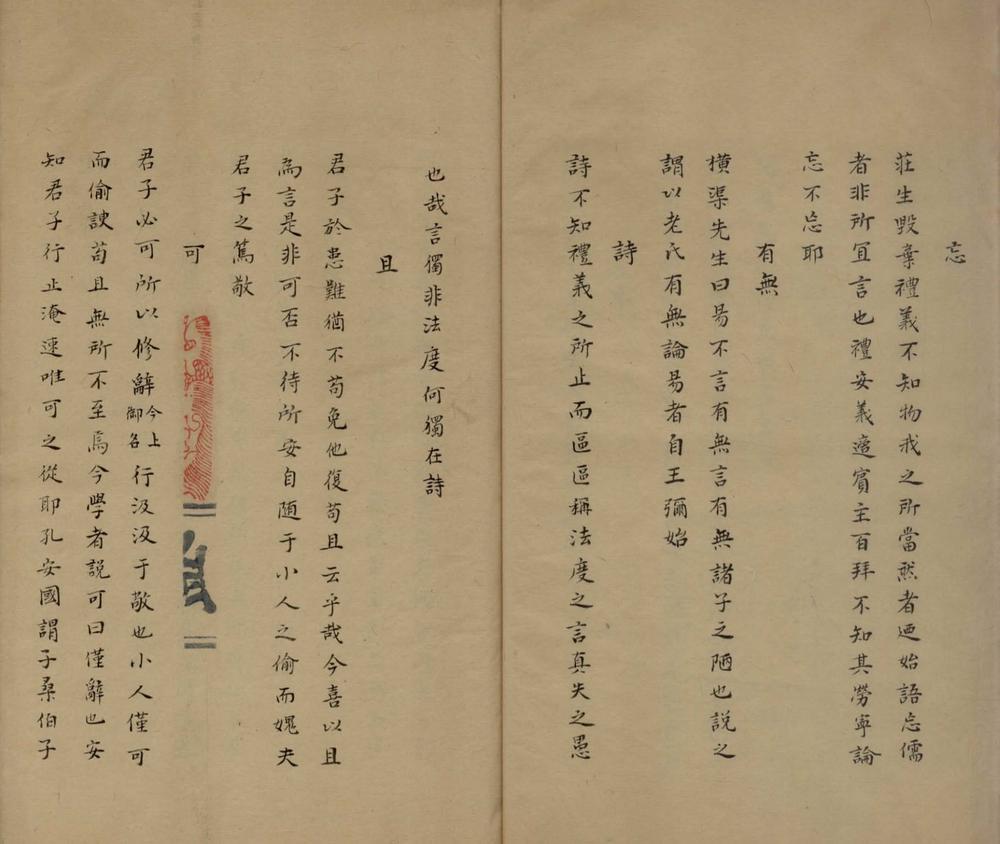 忘
莊生毀棄禮義不知物我之所當然者迺始語忘儒
者非所宜言也禮安義適賓主百拜不知其勞寧論
忘不忘耶
有無
橫渠先生曰易不言有無言有無諸子之陋也說之
謂以老氏有無論易者自王弼始
詩
詩不知禮義之所止而區區稱法度之言真失之愚
也哉言獨非法度何獨在詩
且
君子於患難猶不苟免他復苟且云乎哉今喜以且
為言是非可否不待所安自随于小人之偷而媿夫
君子之篤敬
可
君子必可所以修辭今上御名行汲汲于敬也小人僅可
而偷諛苟且無所不至焉今學者説可曰僅辭也安
知君子行止淹速唯可之從耶孔安國謂子桑伯子